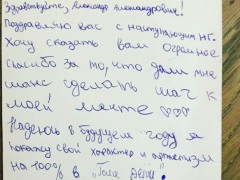 Здравствуйте, Александр Александрович!
Поздравляю вас с наступающим НГ.
Хочу сказать вам огромное
спасибо за то, что дали мне
шанс сделать шаг к
моей мечте ♡♡♡
Надеюсь в будущем году я
покажу свой характер и артистизм
на 1000% в "Тодес